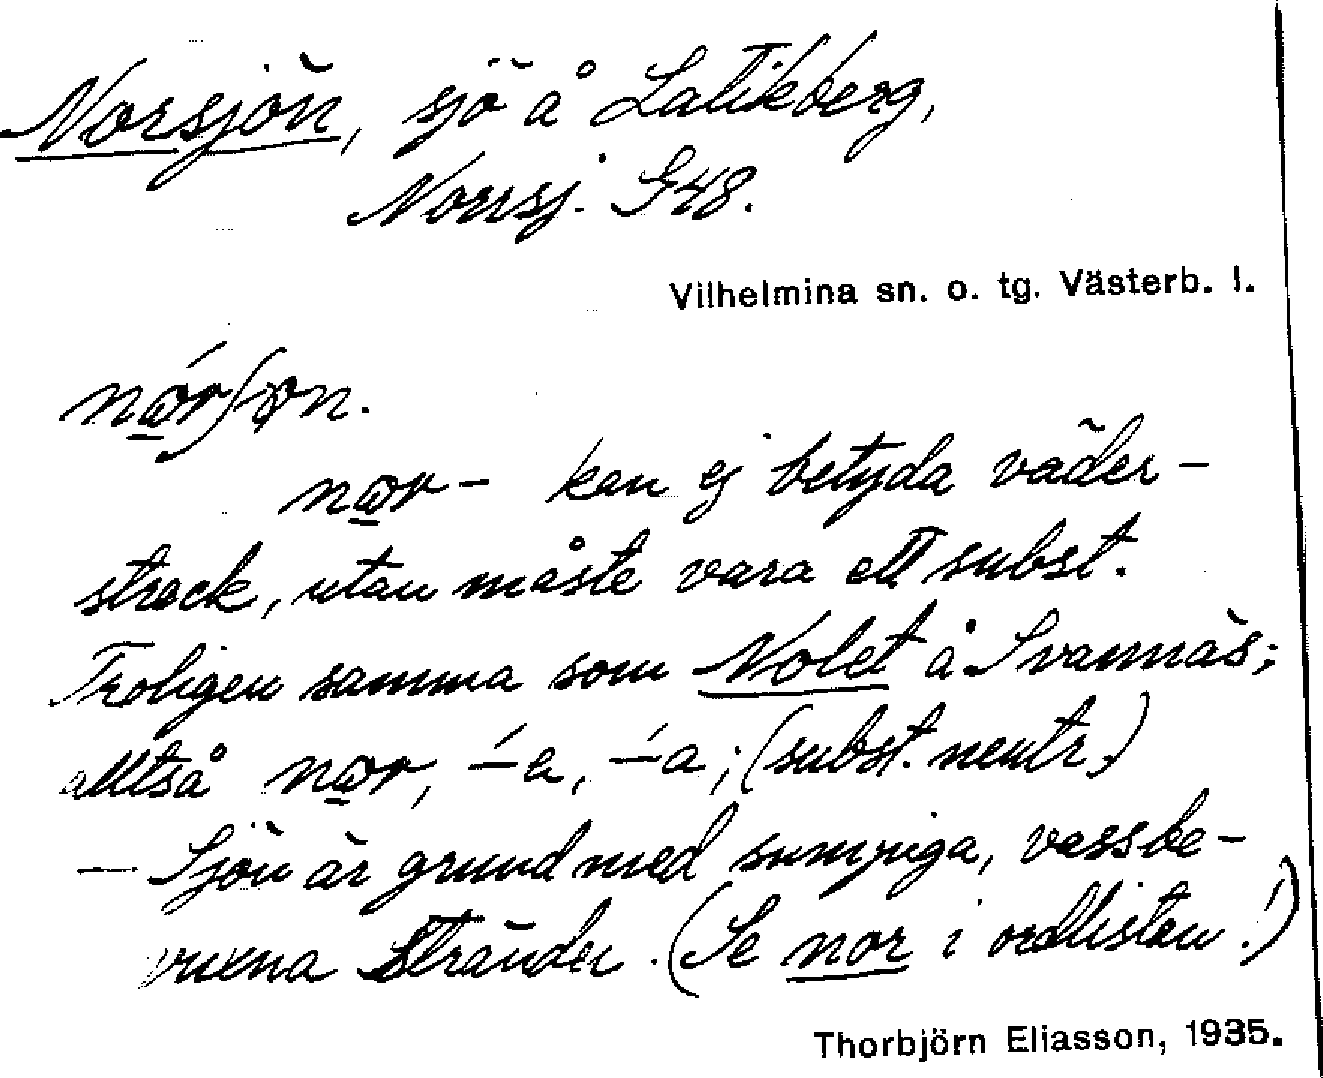 Norsjön, sjö å Latikberg,
Norrsj. G48.
Vilhelmina sn. o. tg. Västerb. l.
nǫ́rʃøn.
nǫr- kan ej betyda väder-
streck, utan måste vara ett subst.
Troligen samma som Nolet å Svannäs;
alltså nǫr, -́e, -́a; (subst. neutr.)
— Sjön är grund med sumpiga, vassbe-
vuxna stränder. (Se nor i ordlistan!)
Thorbjörn Eliasson, 1935.